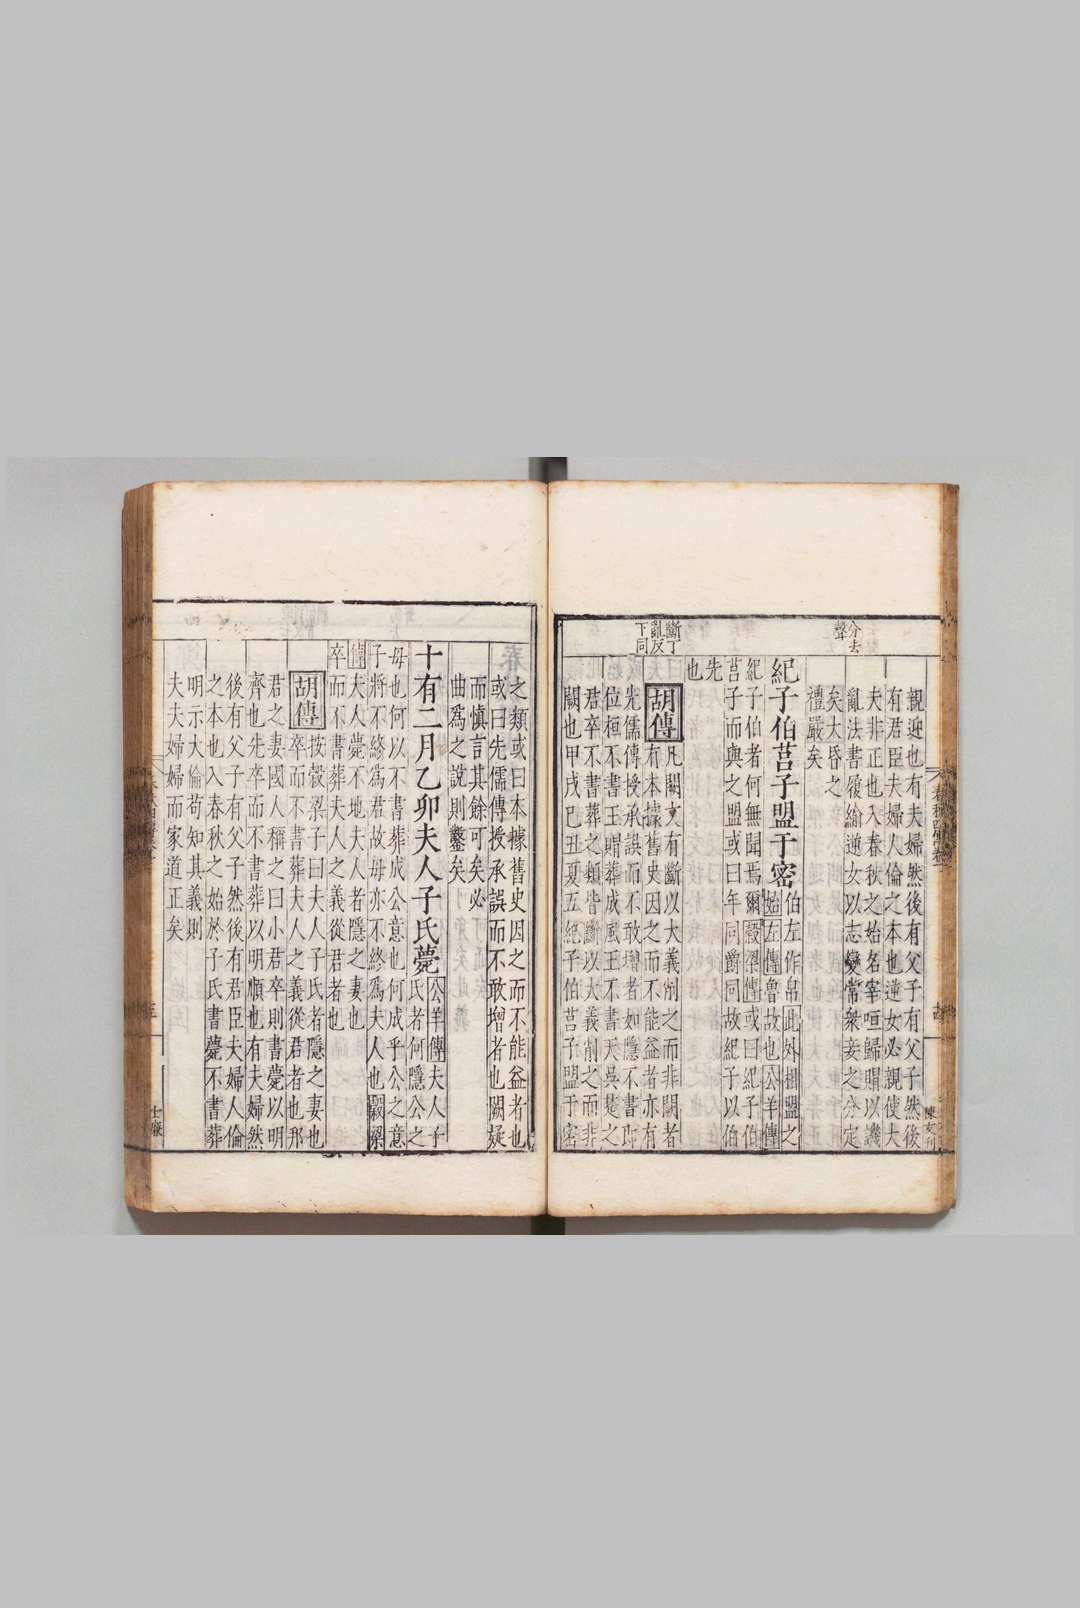 親迎也有夫婦然後有父子有父子然後
有君臣夫婦人倫之本也逆女必親使大
夫非正也入春秋之始名宰咺歸賵以譏
亂法書履緰逆女以志變常衆妾之分定
矣大昏之
禮嚴矣
分去
聲
紀子伯莒子盟于密
伯左作帛此外相盟之
始左傳魯故也公羊傳
紀子伯者何無聞焉爾穀梁傳或曰紀子伯
莒子而與之盟或曰年同爵同故紀子以伯
先
也
斷丁
亂反
下同
胡傳
凡闕文有斷以大義削之而非闕者
有本據舊史因之而不能益者亦有
先儒傳授承誤而不敢增者如隱不書即
位桓不書王賵葬成風王不書天吳楚之
君卒不書葬之類皆斷以大義削之而非
闕也甲戌己丑夏五紀子伯莒子盟于密
之類或曰本據舊史因之而不能益者也
或曰先儒傳授承誤而不敢增者也闕疑
而慎言其餘可矣必
曲爲之說則鑿矣
十有二月乙卯夫人子氏薨
公羊傳夫人子
氏者何隱公之
母也何以不書葬成公意也何成乎公之意
子將不終爲君故母亦不終爲夫人也穀梁
傳夫人薨不地夫人者隱之妻也
卒而不書葬夫人之義從君者也
胡傳
按穀梁子曰夫人子氏者隱之妻也
卒而不書葬夫人之義從君者也邦
君之妻國人稱之曰小君卒則書薨以明
齊也先卒而不書葬以明順也有夫婦然
後有父子有父子然後有君臣夫婦人倫
之本也入春秋之始於子氏書薨不書葬
明示大倫苟知其義則
夫夫婦婦而家道正矣